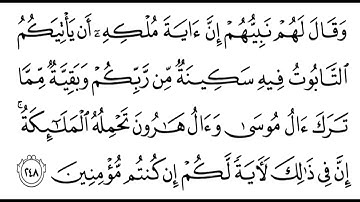 وَقَالَ لَهُمْ نَبِيُّهُمْ إِنَّ ءَايَةَ مُلْكِهِۦٓ أَن يَأْتِيَكُمُ
ٱلتَّابُوتُ فِيهِ سَكِينَةٌ مِّن رَّبِّكُمْ وَبَقِيَّةٌ مِّمَّا
تَرَكَ ءَالُ مُوسَىٰ وَءَالُ هَـٰرُونَ تَحْمِلُهُ ٱلْمَلَـٰٓئِكَةُ ۚ
إِنَّ فِى ذَٰلِكَ لَـَٔايَةً لَّكُمْ إِن كُنتُم مُّؤْمِنِينَ ٢٤٨